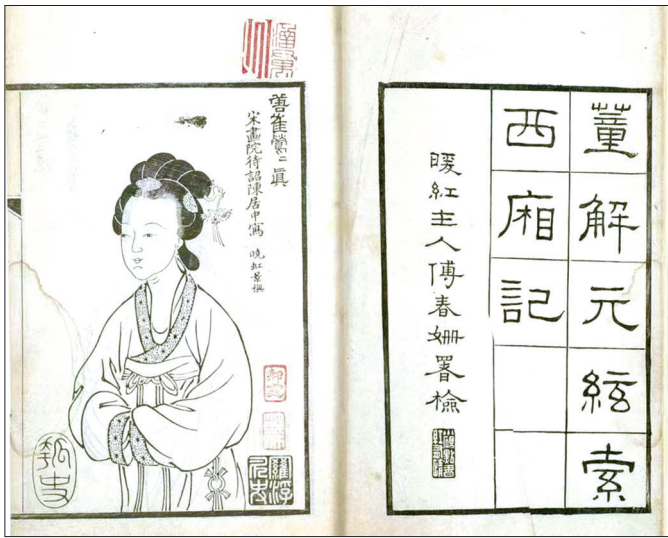 董解元絃索
西廂記
暖紅主人傅春姍署檢
崔鶯〻真
宋畫院待詔陳居中寫
曉紅景撫